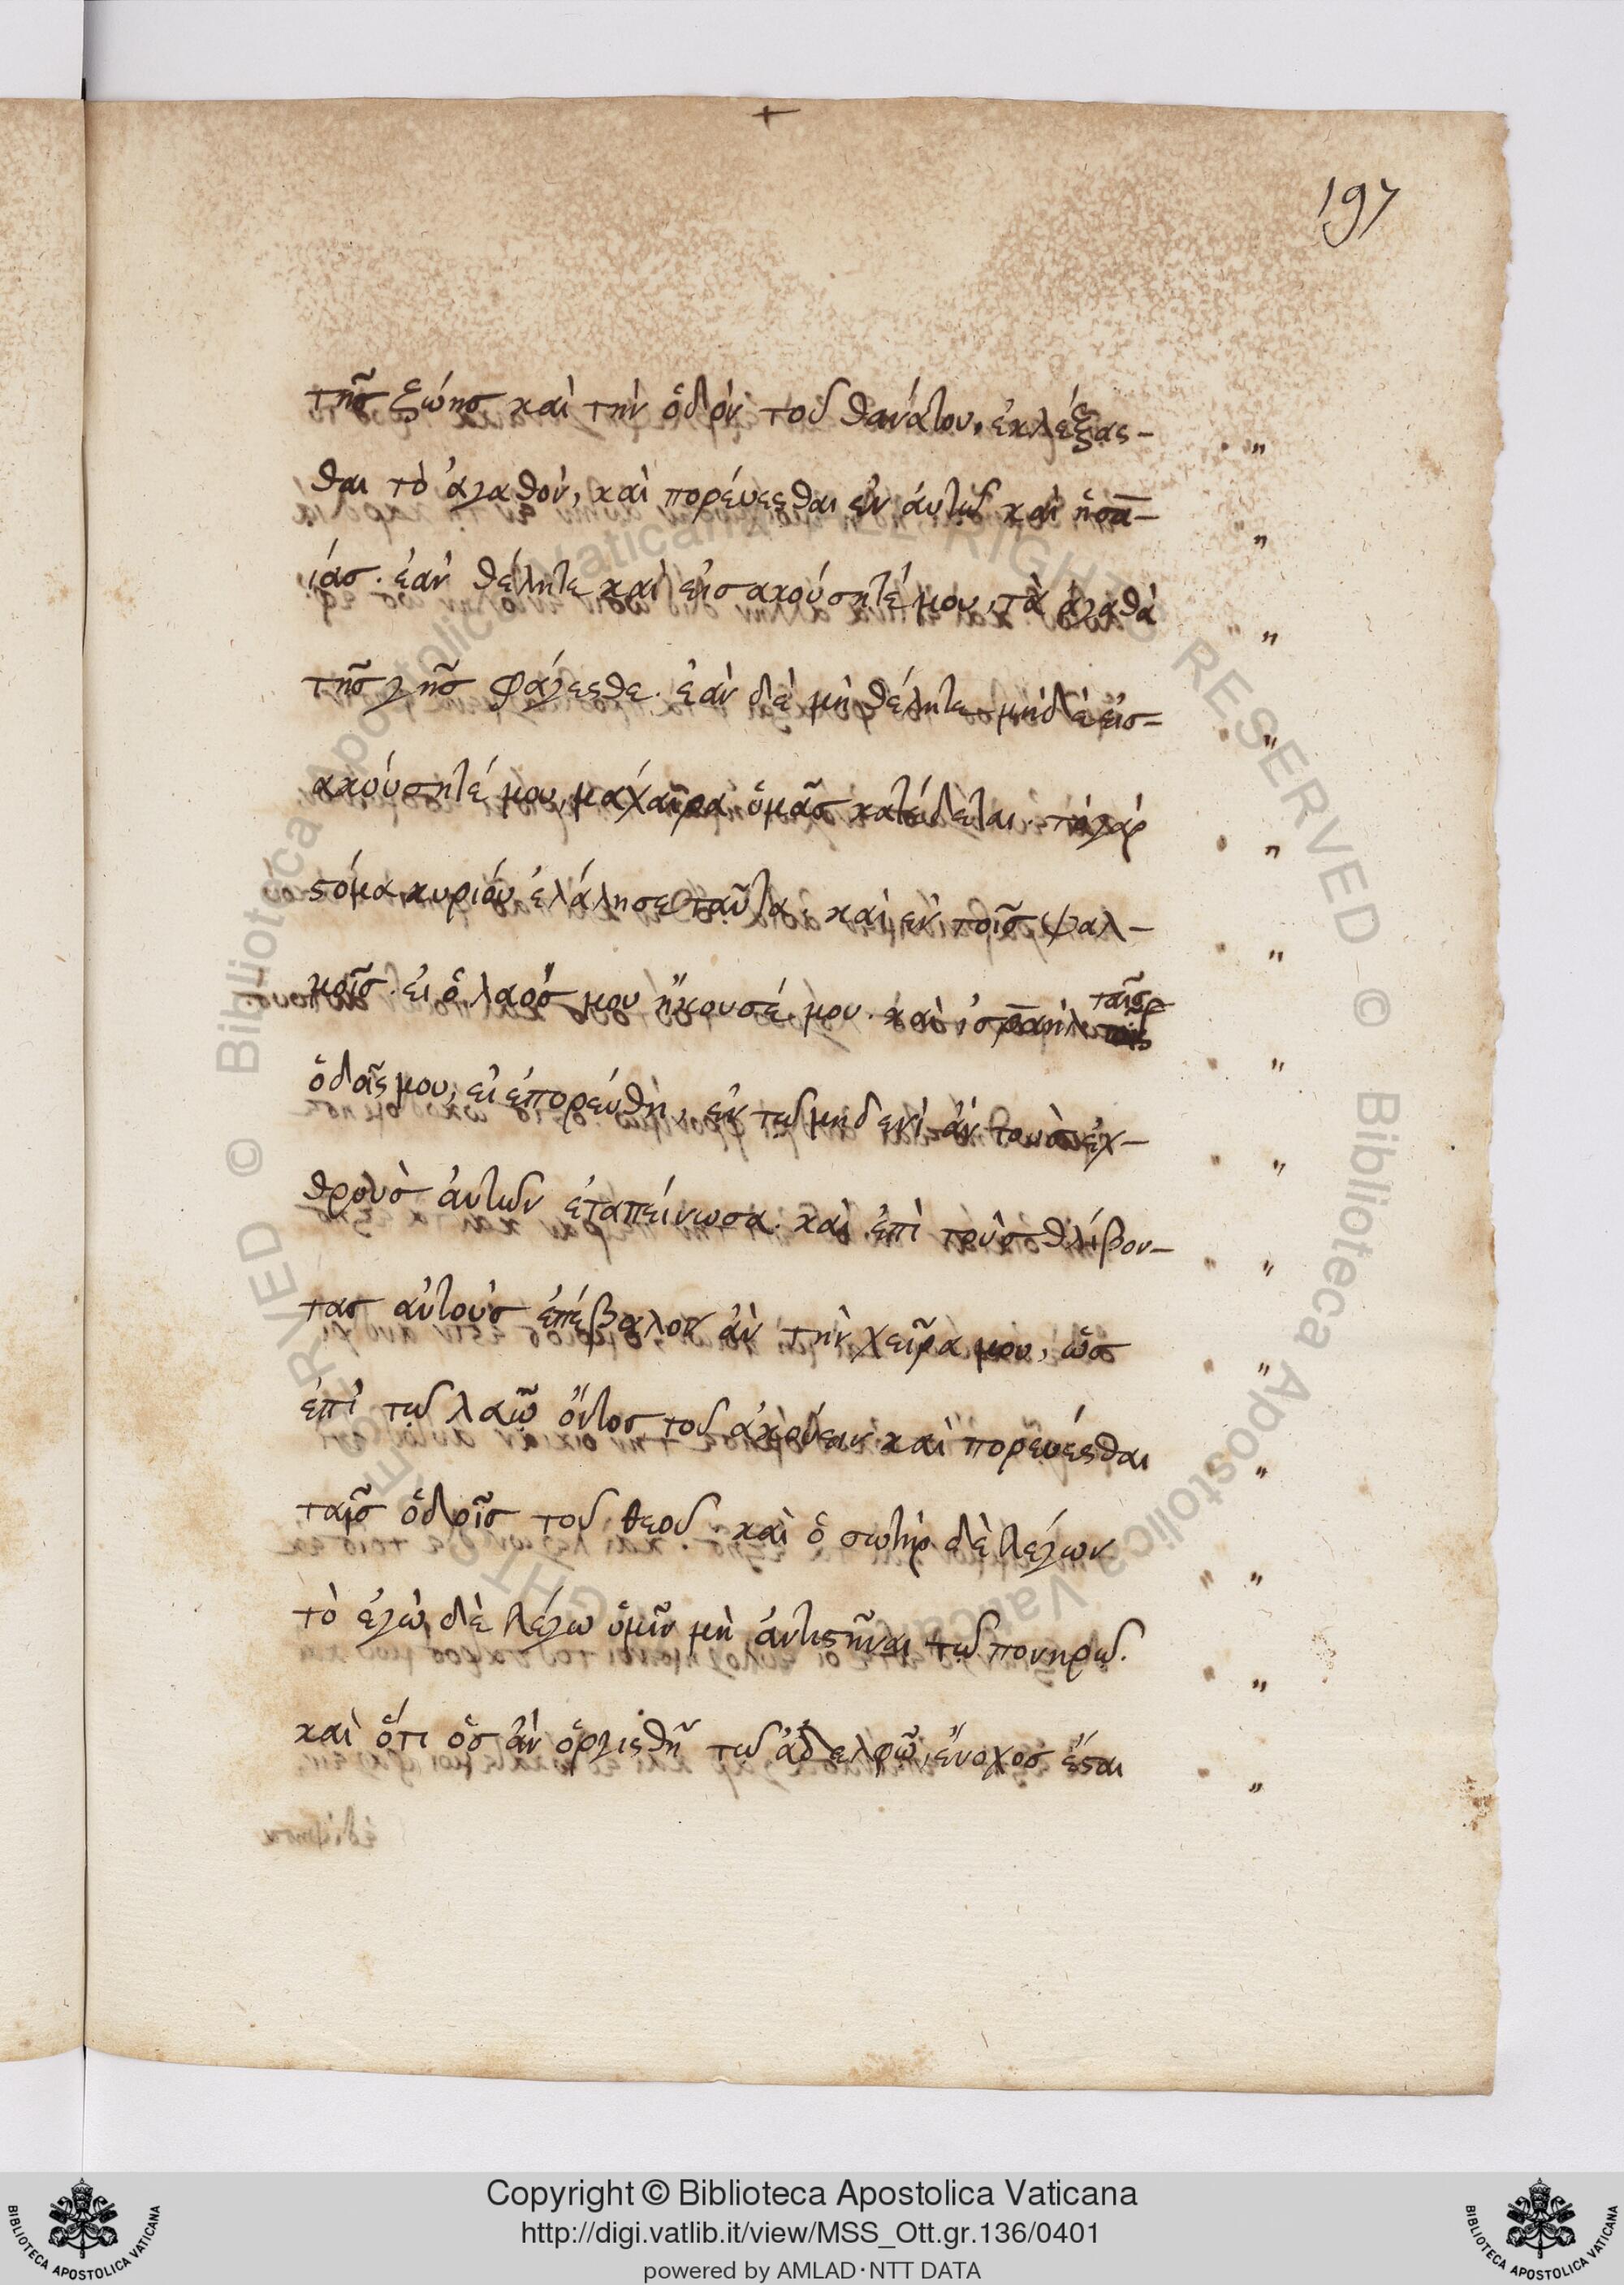 197
τῆς ζώης καὶ τὴν ὁδὸν τοῦ θανάτου, ἐκλέξασ-
θαι τὸ ἀγαθόν, καὶ πορέυεσθαι ἐν ἀυτῶ καὶ ἡσα-
ίας. ἐὰν θέλητε καὶ εἰσακούσητέ μου, τὰ ἀγαθὰ
τῆς γῆς φάγεσθε. ἐὰν δὲ μὴ θέλητε μηδὲ εἰσ-
ακούσητέ μου, μαχαῖρα ὑμᾶς κατέδεται. τὸ γὰρ
στόμα κυρίου ἐλάλησε ταῦτα. καὶ ἐν τοῖς ψαλ-
μοῖς. εἰ ὁ λαός μου ἤκουσέ μου. καὶ ἰσραὴλ ταῖς
ὁδοῖς μου, εἰ ἐπορεύθη, ἐν τῶ μηδενὶ ἂν τοὺς ἐχ-
θροὺς ἀυτῶν ἐταπείνωσα. καὶ ἐπὶ τοὺς θλίβον-
τας αὐτοὺς ἐπέβαλον ἂν τὴν χεῖρα μου, ὡς
ἐπὶ τῶ λαῶ ὄντος τοῦ ἀκούειν καὶ πορευέσθαι
ταῖς ὁδοῖς τοῦ θεοῦ. καὶ ὁ σωτὴρ δὲ λέγων
τὸ ἐγὼ δὲ λέγω ὑμῖν μὴ ἀντιστῆναι τῶ πονηρῶ.
καὶ ὅτι ὃς ἂν ὀργισθῆ τῶ ἀδελφῶ, ἔνοχος ἔσται
Copyright © Biblioteca Apostolica Vaticana
http://digi.vatlib.it/view/MSS_Ott.gr.136/0401
powered by AMLAD·NTT DATA
BIBLIOTECA APOSTOLICA VATICANA
BIBLIOTECA APOSTOLICA VATICANA